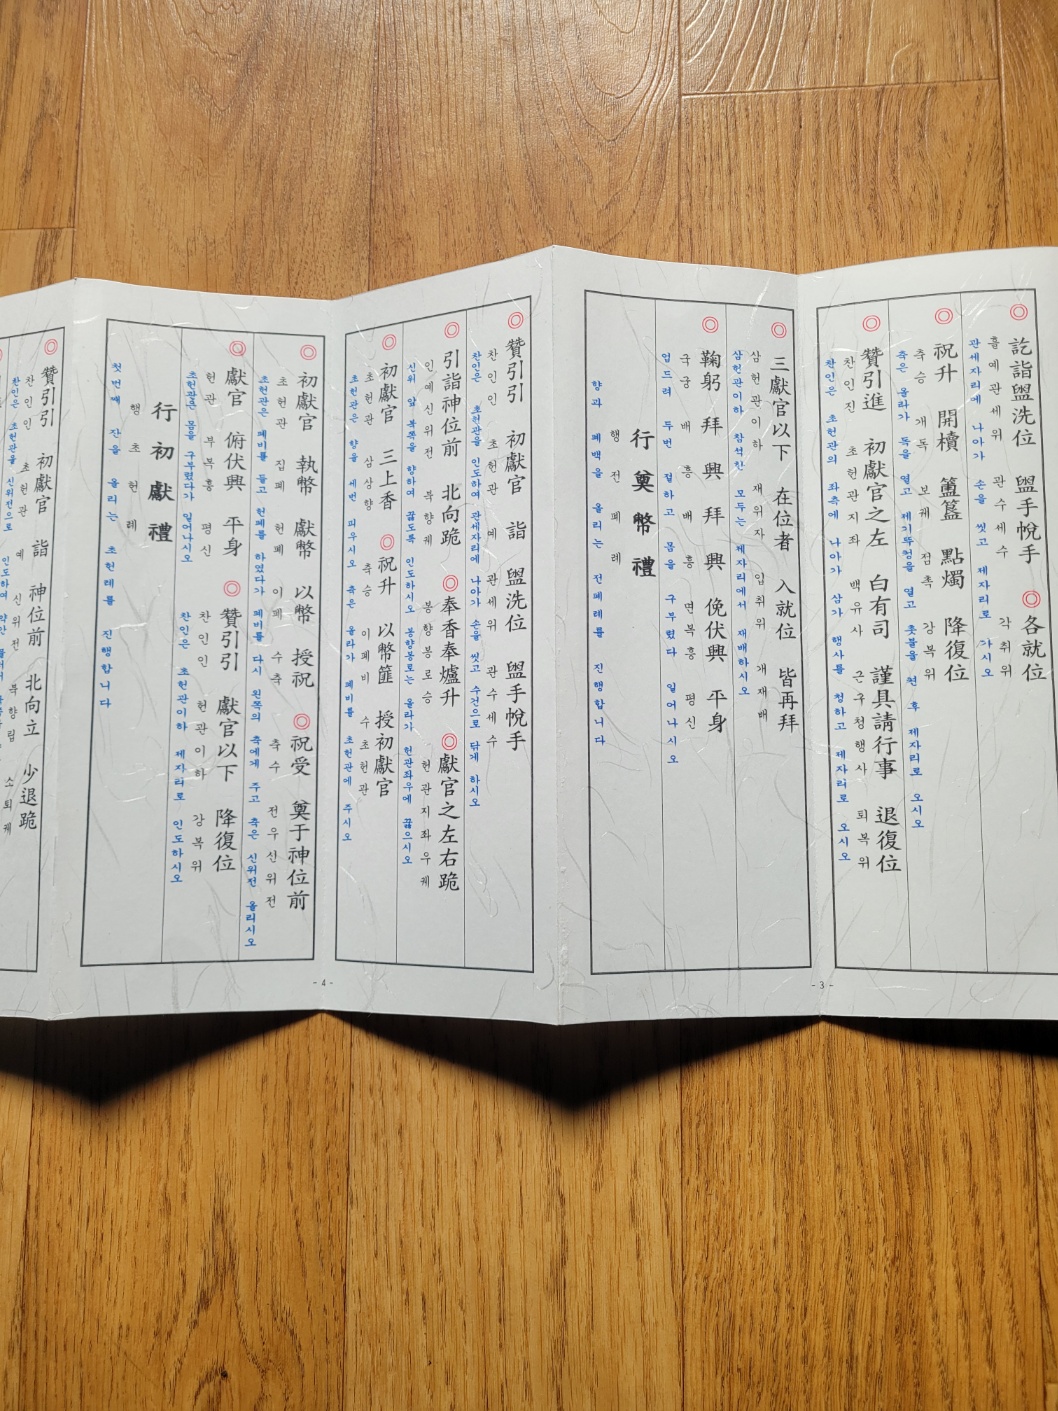 ◎訖詣盥洗位 盥手帨手 ◎各就位
홀예관세위 관수세수 각취위
관세자리에 나아가 손을 씻고 제자리로 가시오
◎祝升 開櫝 簠簋 點燭 降復位
축승 개독 보궤 점촉 강복위
축은 올라가 독을 열고 제기뚜껑을 열고 촛불을 켠 후 제자리로 오시오
◎贊引進 初獻官之左 白有司 謹具請行事 退復位
찬인진 초헌관지좌 백유사 근구청행사 퇴복위
찬인은 초헌관의 좌측에 나아가 삼가 행사를 청하고 제자리로 오시오
- 3 -
◎三獻官以下 在位者 入就位 皆再拜
삼헌관이하 재위자 입취위 개재배
삼헌관이하 참석한 모두는 제자리에서 재배하시오
◎鞠躬 拜 興 拜 興 俛伏興 平身
국궁 배 흥 배 흥 면복흥 평신
엎드려 두번 절하고 몸을 구부렸다 일어나시오
行奠幣禮
행전폐례
향과 폐백을 올리는 전폐례를 진행합니다
◎贊引引 初獻官 詣 盥洗位 盥手帨手
찬인인 초헌관 예 관세위 관수세수
찬인은 초헌관을 인도하여 관세자리에 나아가 손을 씻고 수건으로 닦게 하시오
◎引詣神位前 北向跪 ◎奉香奉爐升 ◎獻官之左右跪
인예신위전 북향궤 봉향봉로승 헌관지좌우궤
신위 앞 북쪽을 향하여 꿇도록 인도하시오 봉향봉로는 올라가 헌관좌우에 꿇으시오
◎初獻官 三上香 ◎祝升 以幣篚 授初獻官
초헌관 삼상향 축승 이폐비 수초헌관
초헌관은 향을 세번 피우시오 축은 올라가 폐비를 초헌관에 주시오
- 4 -
◎初獻官 執幣 獻幣 以幣 授祝 ◎祝受 奠于神位前
초헌관 집폐 헌폐 이폐 수축 축수 전우신위전
초헌관은 폐비를 들고 헌폐를 하였다가 폐비를 다시 왼쪽의 축에게 주고 축은 신위전 올리시오
◎獻官 俯伏興 平身 ◎贊引引 獻官以下 降復位
헌관 부복흥 평신 찬인인 헌관이하 강복위
초헌관은 몸을 구부렸다가 일어나시오 찬인은 초헌관이하 제자리로 인도하시오
行初獻禮
행초헌례
첫번째 잔을 올리는 초헌례를 진행합니다
◎贊引引 初獻官 詣 神位前 北向立 少退跪
찬인인 초헌관 예 신위전 북향립 소퇴궤
찬인은 초헌관을 신위전으로 인도하여